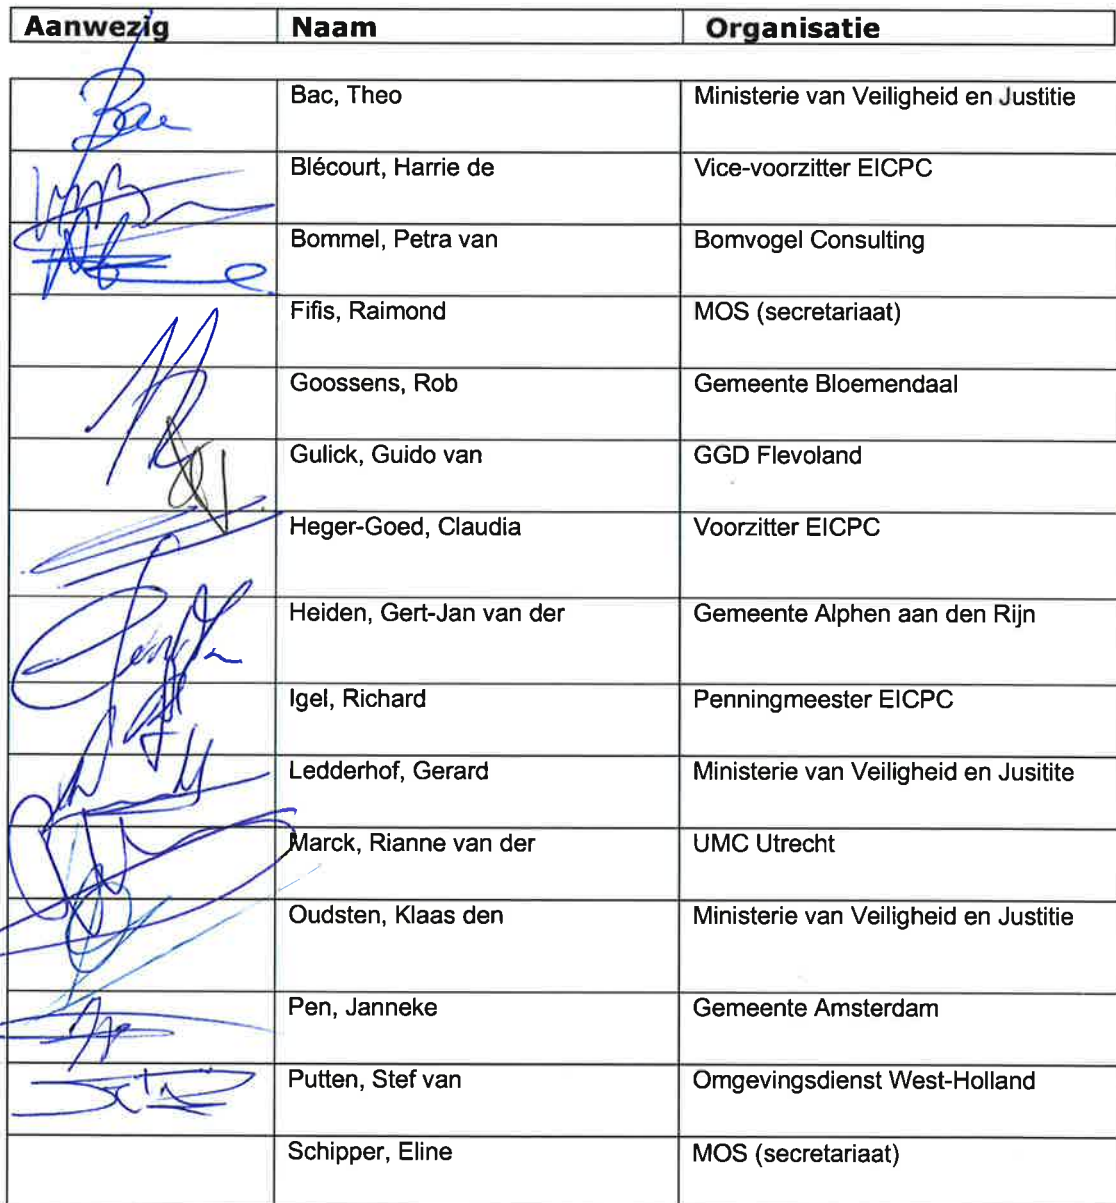 Aanwezig Naam Organisatie
Bac Bac, Theo Ministerie van Veiligheid en Justitie
Blécourt, Harrie de Vice-voorzitter EICPC
Bommel, Petra van Bomvogel Consulting
Fifis, Raimond MOS (secretariaat)
Goossens, Rob Gemeente Bloemendaal
Gulick, Guido van GGD Flevoland
Heger-Goed, Claudia Voorzitter EICPC
Heiden, Gert-Jan van der Gemeente Alphen aan den Rijn
Igel, Richard Penningmeester EICPC
Ledderhof, Gerard Ministerie van Veiligheid en Jusitite
Marck, Rianne van der UMC Utrecht
Oudsten, Klaas den Ministerie van Veiligheid en Justitie
Pen, Janneke Gemeente Amsterdam
Putten, Stef van Omgevingsdienst West-Holland
Schipper, Eline MOS (secretariaat)